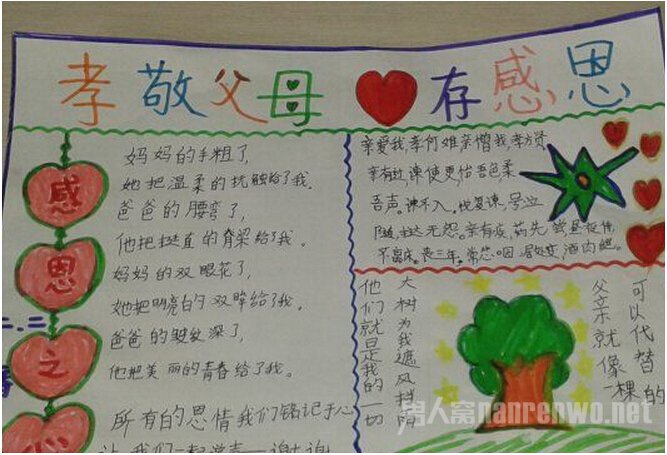 孝敬父母❤存感恩
感
恩
之
心
妈妈的手粗了,
她把温柔的抚触给了我。
爸爸的腰弯了,
他把挺直的脊梁给了我。
妈妈的双眼花了,
她把明亮的双眸给了我。
爸爸的皱纹深了,
他把美丽的青春给了我。
所有的恩情我们铭记于心
让我们一起学声一谢谢
亲爱我,孝何难亲憎我孝方贤
亲有过,谏使更怡吾色柔
吾声。谏不入。悦复谏,号泣
随,挞无怨。亲有疾,药先尝昼夜侍
不离床。丧三年。常悲咽 居处变 酒肉绝。
可以代替
父亲就像一棵的
大树为我遮风挡雨
他们就是我的一切
男人窝nanrenwo.net